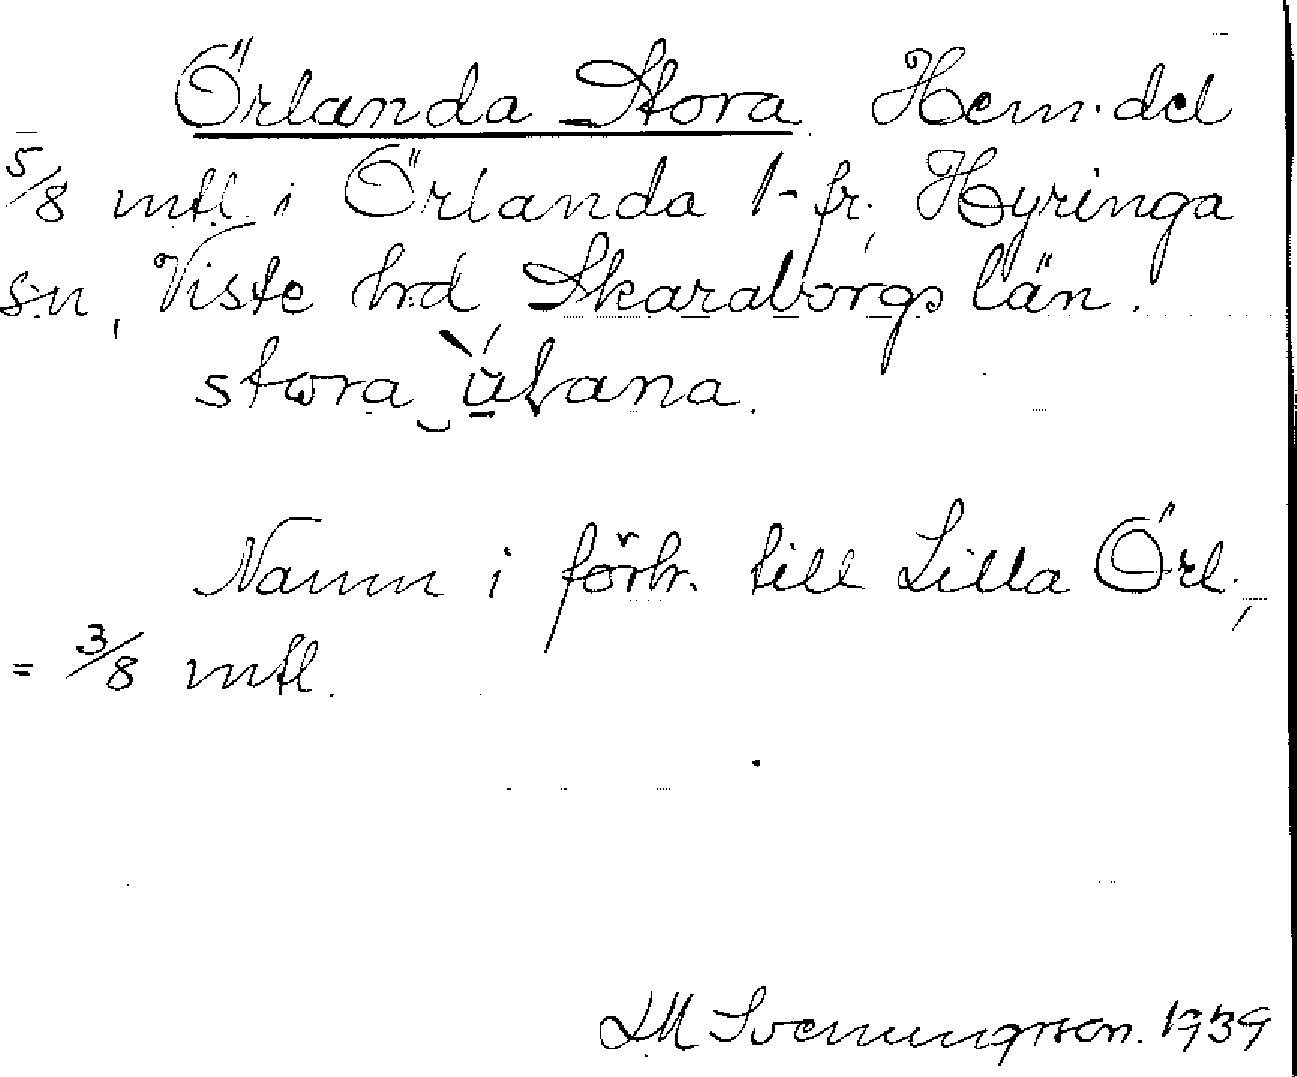 Örlanda Stora. Hem.del
5/8 mtl i Örlanda 1- fr. Hyringa
sn, Viste hrd, Skaraborgs län.
stora
Namn i förh. till Lilla Örl.,
= 3/8 mtl.
LM Svenungsson. 1939